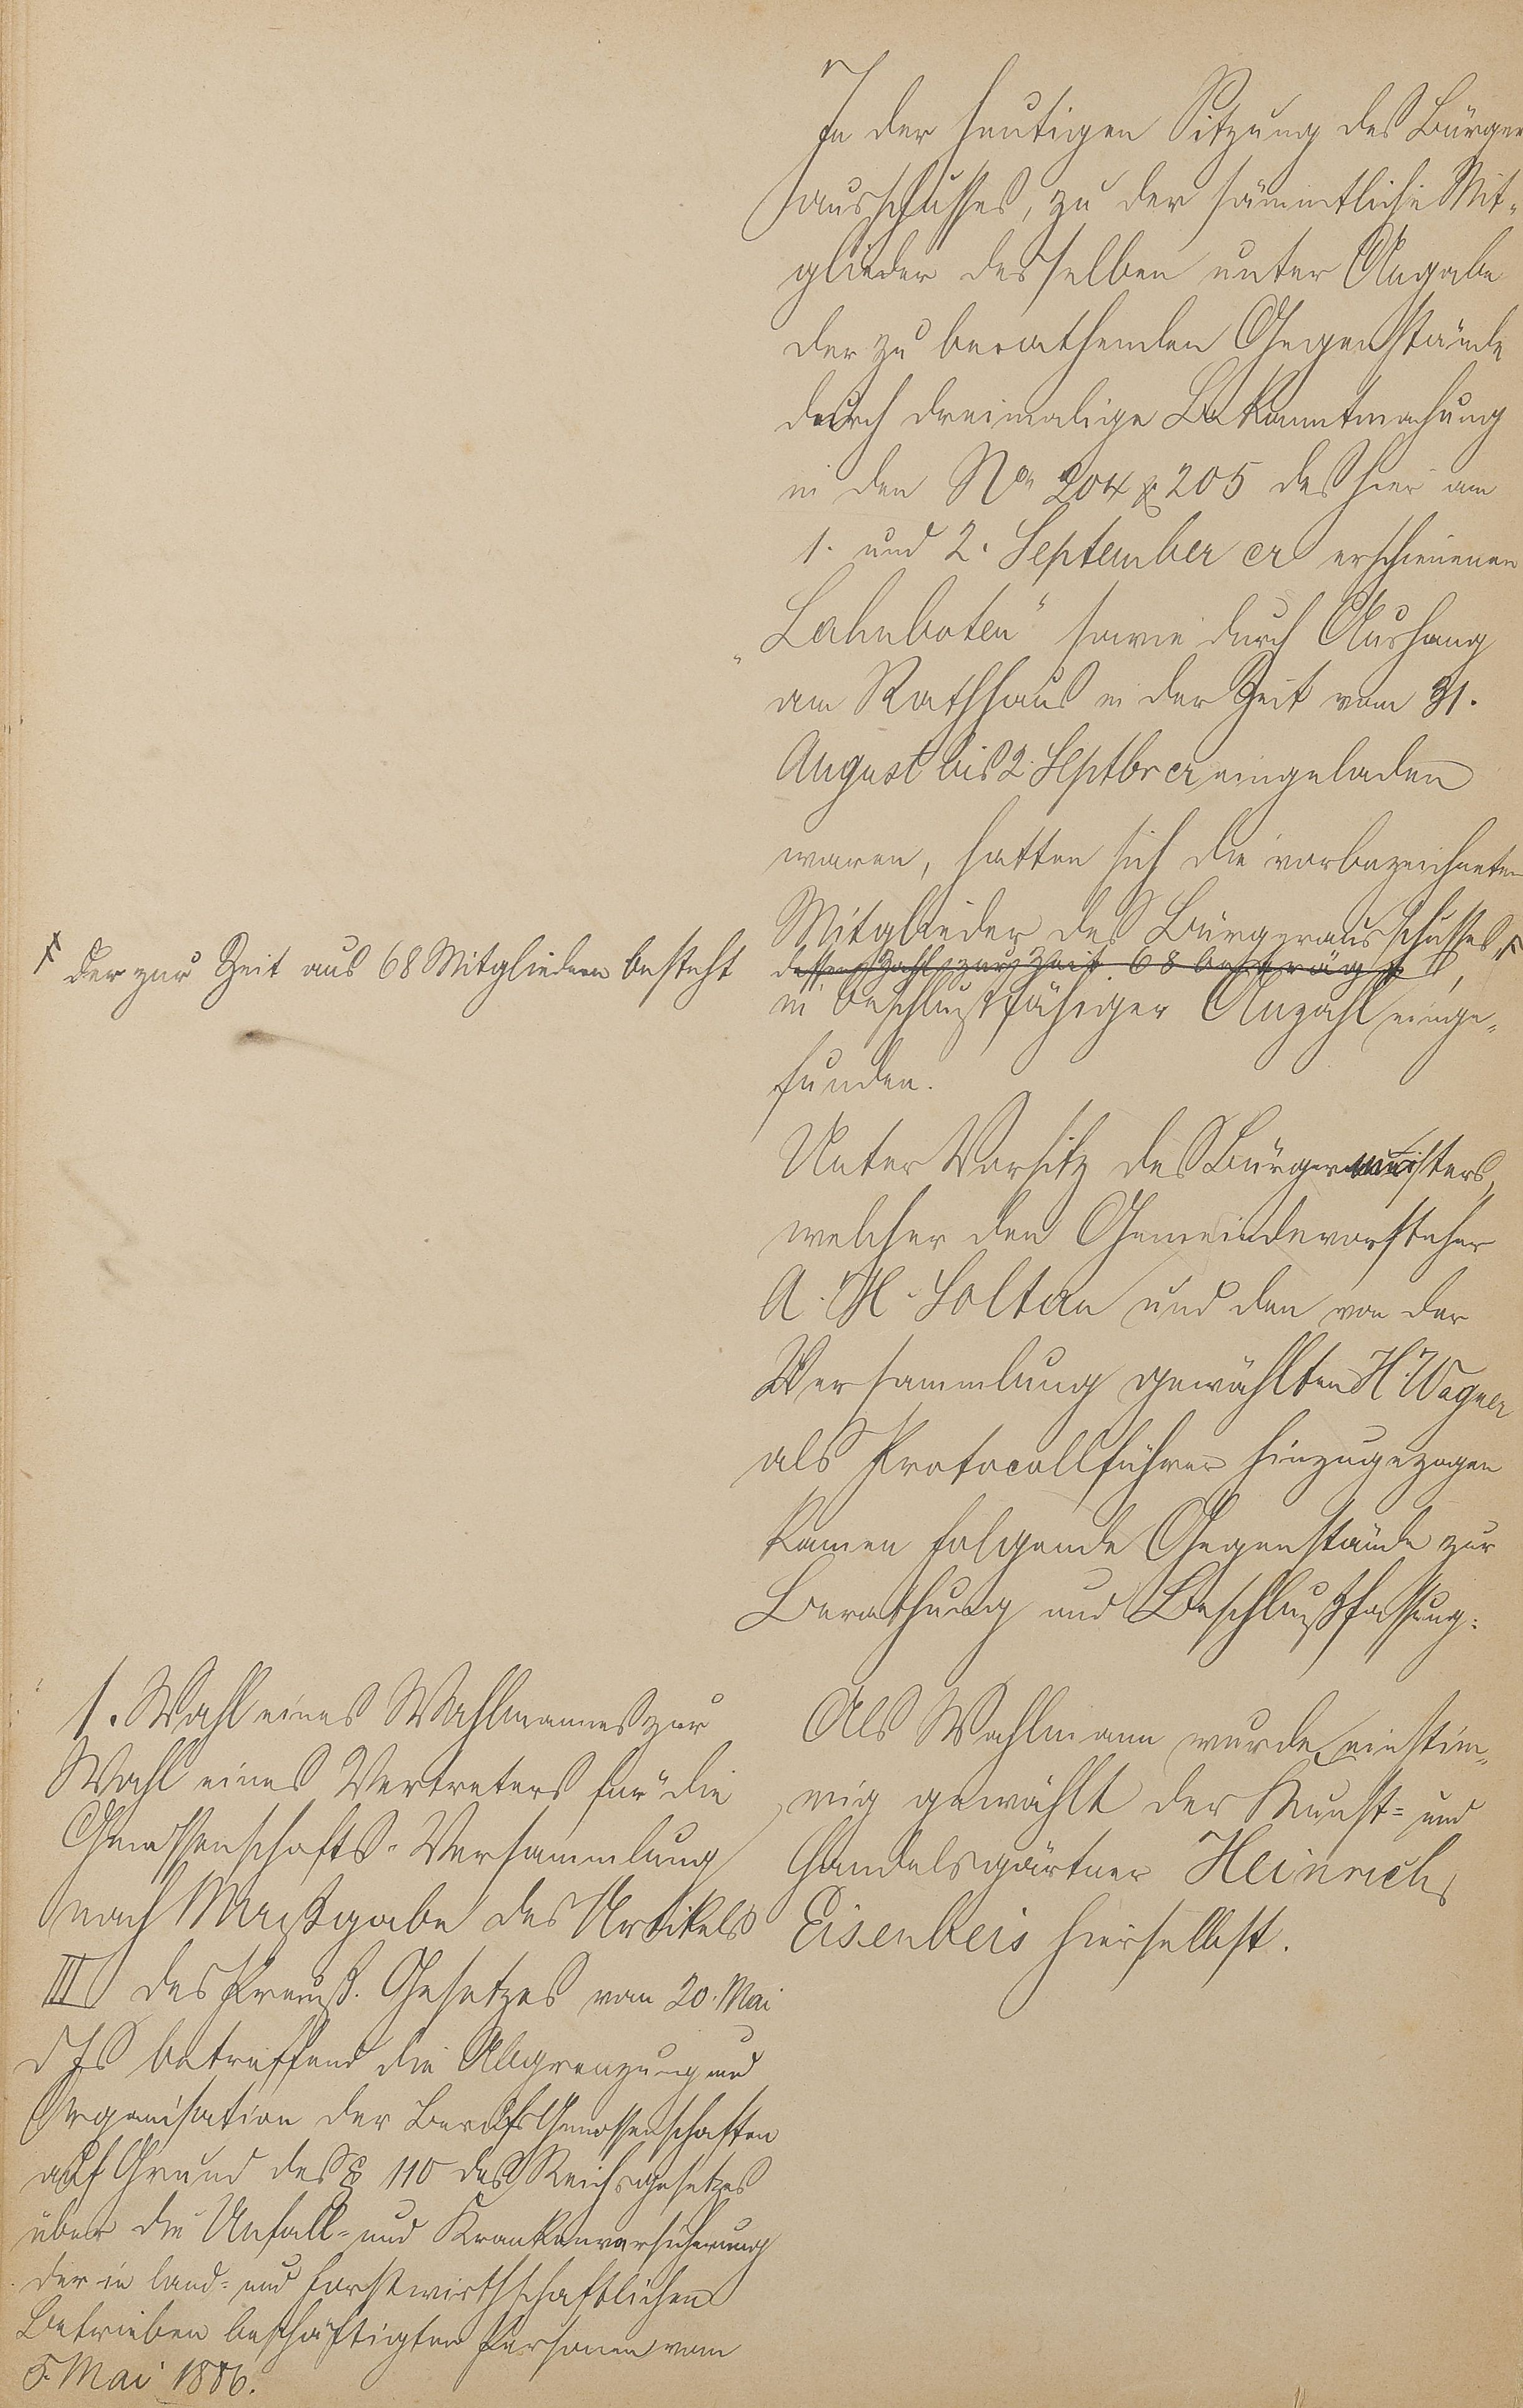 In der heutigen Sitzung des Bürger
ausschusses, zu der sämmtliche Mit-
glieder desselben unter Angabe
der zu berathenden Gegenstände
durch dreimalige Bekanntmachung
in den Nrn 204 & 205 des hier am
1. und 2. September cr erschienenen
„Lahnboten" sowie durch Aushang
am Rathhaus in der Zeit vom 31.
August bis 2. Septbr cr eingeladen
waren, hatten sich die vorbezeichneten
Mitglieder des Bürgerausschusses, ×
dessen Zahl zur Zeit 68 beträgt,
× der zur Zeit aus 68 Mitgliedern besteht
in beschlußfähiger Anzahl einge-
funden.
Unter Vorsitz des Bürgermeisters,
welcher den Gemeindevorsteher
A. H. Soltan und den von der
Versammlung gewählten H. Wagner
als Protocollführer hinzugezogen
kamen folgende Gegenstände zur
Berathung und Beschlußfassung:
1. Wahl eines Wahlmannes zur
Wahl eines Vertreters für die
Genossenschafts-Versammlung
nach Maßgabe des Artikels
III des Preuß. Gesetzes vom 20. Mai
d Js betreffend die Abgrenzung und
Organisation der Berufsgenossenschaften
auf Grund des § 110 des Reichsgesetzes
über die Unfall- und Krankenversicherung
der in land- und forstwirthschaftlichen
Betrieben beschäftigten Personen vom
5. Mai 1886.
Als Wahlmann wurde einstim-
mig gewählt der Kunst- und
Handelsgärtner Heinrich
Eisenbeis hierselbst.